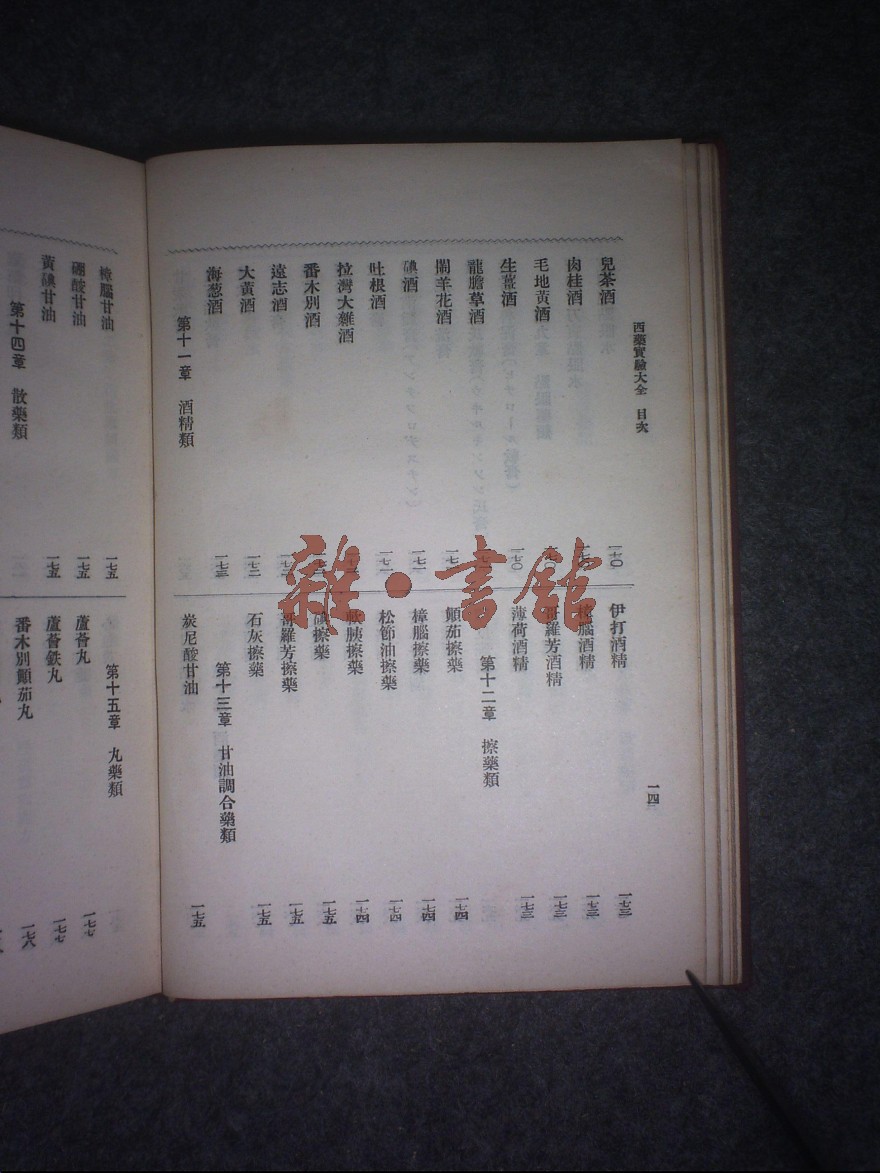 西藥實驗大全 目次
一四
兒茶酒 一七〇
肉桂酒
毛地黃酒
生薑酒 一七〇
龍膽草酒
鬧羊花酒
碘酒 一七一
吐根酒 一七一
拉灣大雜酒
番木別酒
遠志酒
大黃酒 一七二
海葱酒 一七三
第十一章 酒精類
伊打酒精 一七三
樟腦酒精 一七三
哥羅芳酒精 一七三
薄荷酒精 一七三
第十二章 擦藥類
顛茄擦藥 一七四
樟腦擦藥 一七四
松節油擦藥 一七四
軟胰擦藥 一七四
碘擦藥 一七五
哥羅芳擦藥 一七五
石灰擦藥 一七五
第十三章 甘油調合藥類
炭尼酸甘油 一七五
樟腦甘油 一七五
硼酸甘油 一七五
黃碘甘油 一七五
第十四章 散藥類
第十五章 丸藥類
蘆薈丸 一七七
蘆薈鉄丸 一七七
番木別顛茄丸 一七八
雜·書館